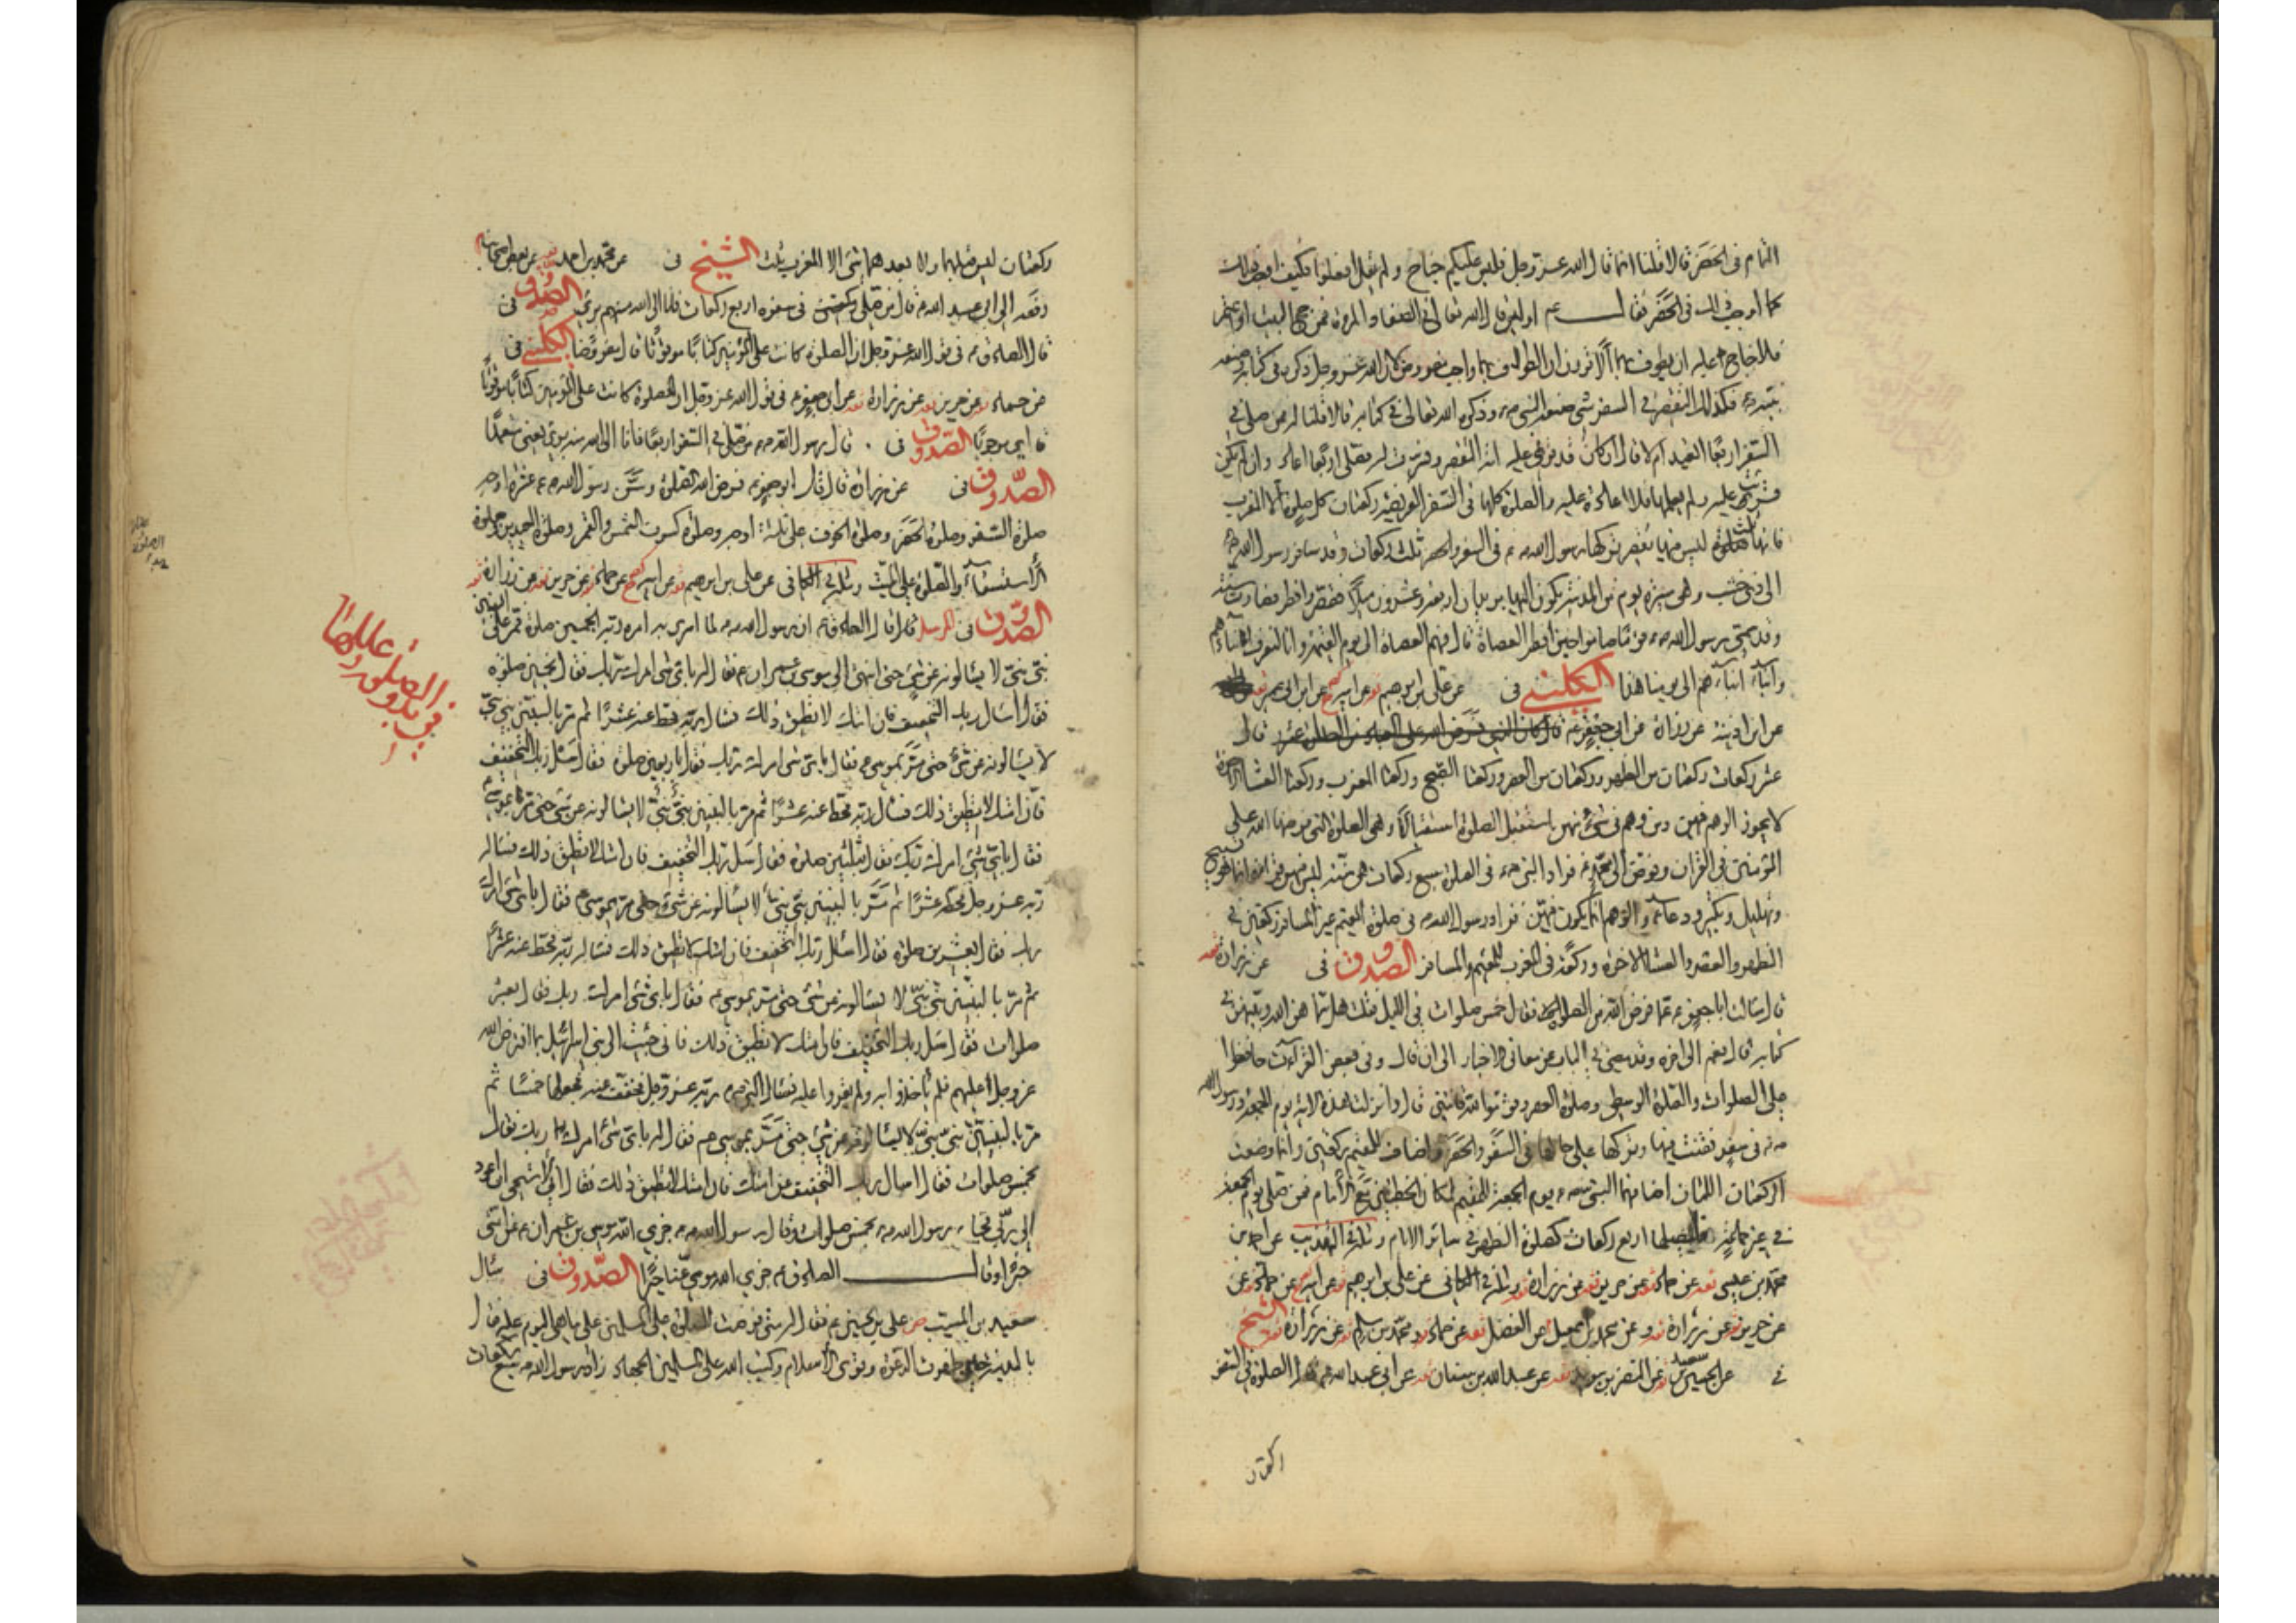 التمام فى الحَضَر قالا قلنا انما قال الله عزّ وجل فليس عليكم جناح ولم يقل افعلوا فكيف اوجب ذلك
كما اوجب التمام فى الحَضَر فقال عم اوليس قال الله تعالى فى الصفا والمروة فمن حج البيت او اعتمر
فلا جناح عليه ان يطوف بهما ألا ترون ان الطواف بهما واجب مفروض لان الله عز وجل ذكره فى كتابه وصنعه
نبيّه وكذلك التقصير فى السفر شئ صنعه النبى ص وذكره الله تعالى فى كتابه قالا قلنا له فمن صلى فى
السفر اربعًا ايعيد ام لا قال ان كان قد قرئت عليه اية التقصير وفسّرت له فصلى اربعًا اعاد وان لم يكن
قرئت عليه ولم يعلمها فلا اعادة عليه والصلوة كلها فى السفر الفريضة ركعتان كل صلوة الا المغرب
فانها ثلث ليس فيها تقصير تركها رسول الله ص فى السفر والحضر ثلث ركعات وقد سافر رسول الله ص
الى ذى خشب وهى مسيرة يوم من المدينة يكون اليها بريدان اربعة وعشرون ميلًا فقصّر وافطر فصارت سنة
وقد سمّى رسول الله ص قومًا صاموا حين افطر العصاة قال فهم العصاة الى يوم القيمة وانا لنعرف ابناءهم
وابناء ابنائهم الى يومنا هذا الكلينى فى عن على بن ابرهيم عن ابيه عن ابن ابى عمير
عن ابن اذينة عن زرارة عن ابى جعفر ع قال كان الذى فرض الله على العباد من الصلوة عشر قال
عشر ركعات ركعتان من الظهر وركعتان من العصر وركعتا الصبح وركعتا المغرب وركعتا العشاء الاخرة
لا يجوز الوهم فيهن ومن وهم فى شئ منهن استقبل الصلوة استقبالًا وهى الصلوة التى فرضها الله على
المؤمنين فى القران وفوّض الى محمّد ص فزاد النبى ص فى الصلوة سبع ركعات هى سنّة ليس فيهن قراءة انما هو تسبيح
وتهليل وتكبير ودعاء والوهم انما يكون فيهنّ فزاد رسول الله ص فى صلوة المقيم غير المسافر ركعتين فى
الظهر والعصر والعشاء الاخرة وركعة فى المغرب للمقيم والمسافر الصّدوق فى عن زرارة
قال سالت ابا جعفر ع عمّا فرض الله من الصلوة فقال خمس صلوات فى الليل فقلت هل سمّاهن الله وبيّنهن فى
كتابه قال نعم الى اخره وقد مضى فى الباب عن معانى الاخبار الى ان قال وفى بعض القراءت حافظوا
على الصلوات والصلوة الوسطى وصلوة العصر وقوموا لله قانتين قال وانزلت هذه الاية يوم الجمعة ورسول الله
ص فى سفر فقنت فيها وتركها على حالها فى السَفَر والحَضَر واضاف للمقيم ركعتين وانما وضعت
الركعتان اللتان اضافهما النبى ص يوم الجمعة للمقيم لمكان الخطبتين مع الامام فمن صلى يوم الجمعة
فى غير جماعة فليصلها اربع ركعات كصلوة الظهر فى سائر الايام ومثله فى التهذيب عن احمد بن
محمّد بن عيسى عن حماد عن حريز عن زرارة ومثله فى الكافى عن على بن ابرهيم عن ابيه عن حماد عن
عن حريز عن زرارة وعن محمد بن اسمعيل عن الفضل عن حماد ومحمّد بن مسلم عن زرارة الشيخ
فى عن الحسين بن سعيد عن النضر بن سويد عن عبد الله بن سنان عن ابى عبد الله ع قال الصلوة فى السفر
ركعتان
ركعتان ليس قبلهما ولا بعدهما شئ الا المغرب ثلث الشيخ فى عن محمّد بن احمد عن بعض اصحابنا
رفعه الى ابى عبد الله ع قال من صلى فى سفره اربع ركعات فانا الى الله منه برئ الصّدوق فى
قال الصادق ع فى قول الله عز وجل ان الصلوة كانت على المؤمنين كتابًا موقوتًا قال مفروضًا الكلينى فى
عن حماد عن حريز عن زرارة عن ابى جعفر ع فى قول الله عز وجل ان الصلوة كانت على المؤمنين كتابًا موقوتًا
اى موجوبًا الصّدوق فى . قال رسول الله ص من صلى فى السفر اربعًا فانا الى الله منه برئ يعنى متعمّدًا
الصّدوق فى عن زرارة قال قال ابو جعفر ع فرض الله الصلوة وسَنّ رسول الله ص عشرة اوجه
صلوة السّفر وصلوة الحَضَر وصلوة الخوف على ثلثة اوجه وصلوة كسوف الشمس والقمر وصلوة العيدين وصلوة
الاستسقاء والصلوة على الميّت ومثله فى الكافى عن على بن ابرهيم عن ابيه عن حماد عن حريز عن زرارة
الصّدوق فى مرسلا قال قال الصادق ع ان رسول الله ص لما اسرى به امره ربّه بخمسين صلوة فمرّ على النبيين
نبىّ نبىّ لا يسالونه عن شئ حتى انتهى الى موسى بن عمران ع فقال له باىّ شئ امرك ربّك فقال بخمسين صلوة
فقال اسال ربك التخفيف فان امتك لا تطيق ذلك فسال ربّه فحطّ عنه عشرًا ثم مرّ بالنبيّين نبىّ نبىّ
لا يسالونه عن شئ حتى مَرّ بموسى ع فقال باىّ شئ امرك ربّك فقال باربعين صلوة فقال اسَل ربّك التخفيف
فانّ امتك لا تطيق ذلك فسال ربّه فحطّ عنه عشرًا ثم مرّ بالنبيين نبىّ نبىّ لا يسالونه عن شئ حتى مرّ بموسى ع
فقال باىّ شئ امرك ربّك فقال بثلثين صلوة فقال اسَل ربّك التخفيف فان امتك لا تطيق ذلك فسال
ربّه عز وجل فحطّ عنه عشرًا ثم مَرّ بالنبيين نبىّ نبىّ لا يسالونه عن شئ حتى مرّ بموسى ع فقال باىّ شئ امرك
ربك فقال بعشرين صلوة فقال اسئل ربّك التخفيف فان امتك لا تطيق ذلك فسال ربّه فحطّ عنه عشرًا
ثم مرّ بالنبيّين نبىّ نبىّ لا يسالونه عن شئ حتى مرّ بموسى ع فقال باىّ شئ امرك ربك فقال بعشر
صلوات فقال اسَل ربك التخفيف فان امتك لا تطيق ذلك فانى جئت الى بنى اسرائيل بما افترض الله
عز وجل عليهم فلم ياخذوا به ولم يقروا عليه فسال النبى ص ربّه عز وجل فخفّف عنه فجعلها خمسًا ثم
مرّ بالنبيين نبىّ نبىّ لا يسالونه عن شئ حتى مَرّ بموسى ع فقال له باىّ شئ امرك ربك فقال
بخمس صلوات فقال اسال ربك التخفيف عن امتك فان امتك لا تطيق ذلك فقال انى لاستحيى ان اعود
الى ربّى فجاء رسول الله ص بخمس صلوات وقال رسول الله ص جزى الله موسى بن عمران ع عن امّتى
خيرًا وقال الصادق ع جزى الله موسى عنّا خيرًا الصّدوق فى سال
سعيد بن المسيّب على بن الحسين ع فقال له متى فرضت الصلوة على المسلمين على ما هى اليوم عليه قال
بالمدينة حين ظهرت الدعوة وقوى الاسلام وكتب الله على المسلمين الجهاد زاد رسول الله ص سبع ركعات
فى بدو الصلوة وعللها